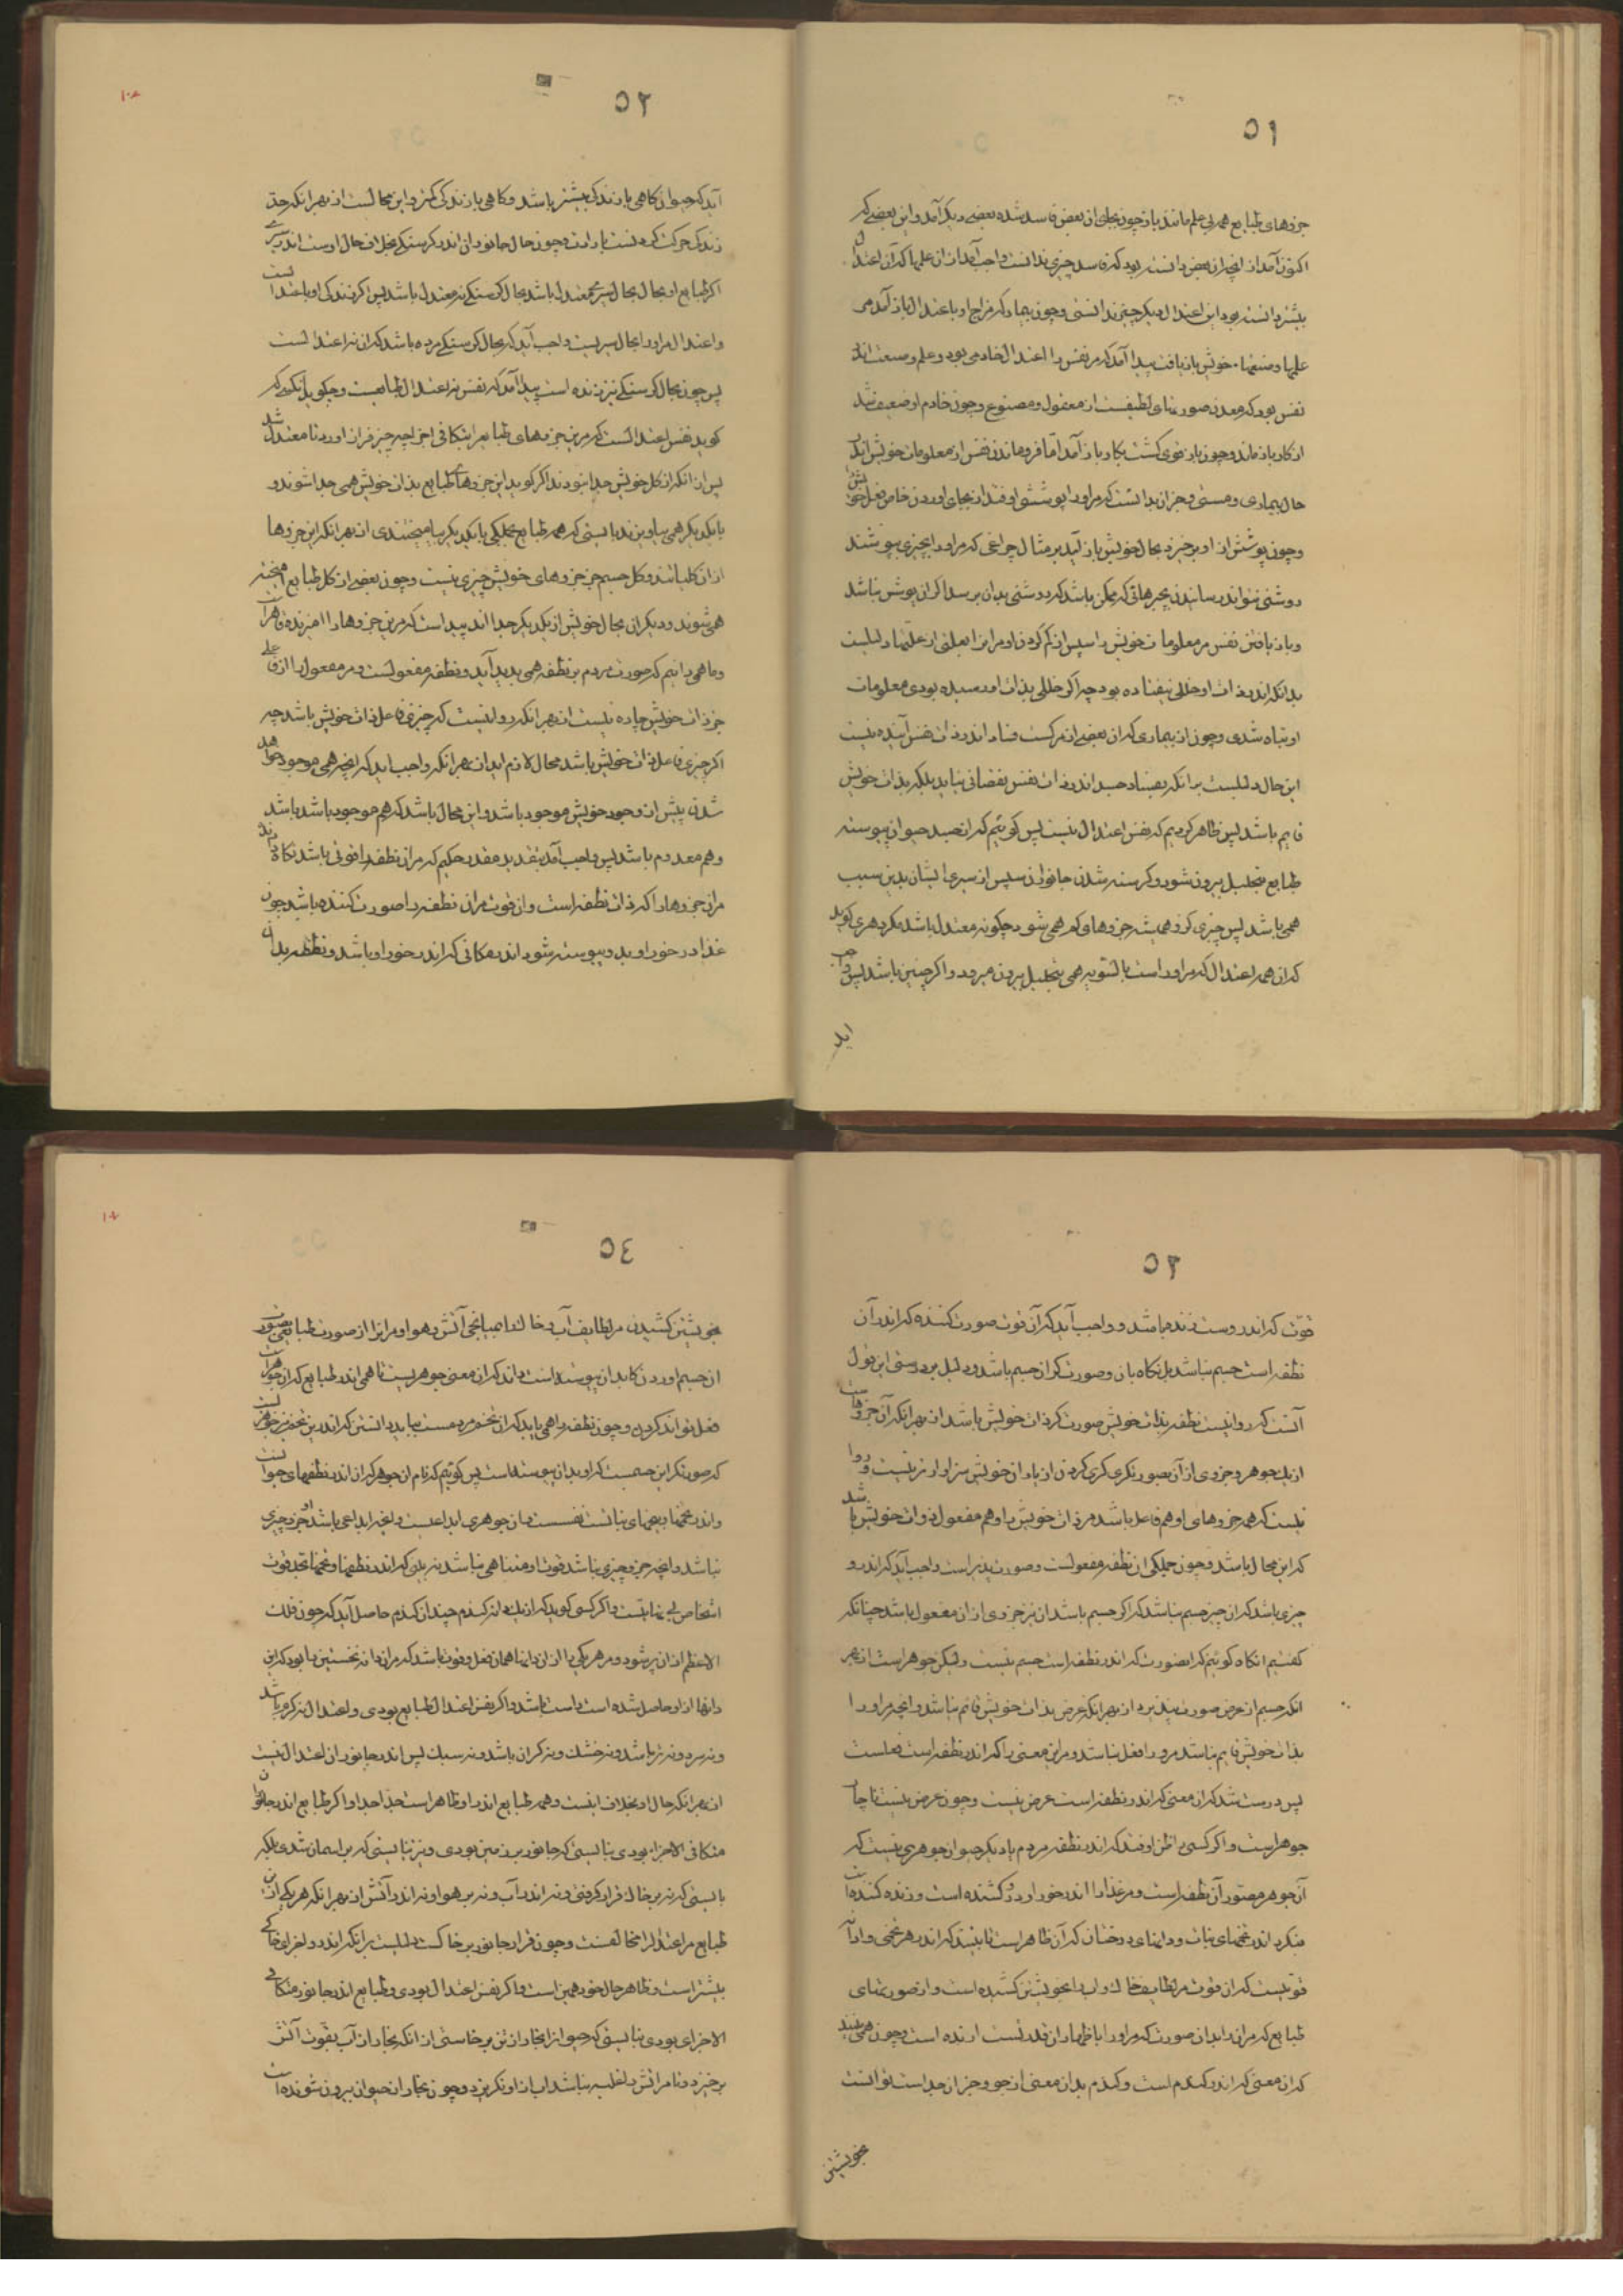 ٥١
جزوهای طبایع همه بی علم مانند باز چون بجای ان بعض فاسد شده بعضی دیکر آمد و این بعضی که
اکنون آمد از انچه ان بعض دانسته بود که فاسد چیزی ندانست واجب آمد از ان علمها که آن اعتدال
بیشتر دانسته بود این اعتدال دیکر چیز ندانستی و چون بیمار که مزاج او باعتدال باز آمد می
علمها و صنعتهاء خویش باز یافت پیدا آمد که مر نفس را اعتدال خادمی بود و علم و صنعت اندر
نفس بود که معدن صورتهای لطیفست از معقول و مصنوع و چون خادم او ضعیف شد
از کار باز ماند و چون باز قوی کشت بکار باز آمد اما فرو ماندن نفس از معلومات خویش اندر
حال بیماری و مستی و جز ان بدانست که مر او را پوششی اوفتد از بجای اوردن خاص فعل خویش
و چون پوشش از او برخیزد بحال خویش باز آید بر مثال چراغی که مر او را بچیزی بپوشند
روشنی نتواند رسانیدن بچیزهائی که ممکن باشد که روشنی بدان برسد اکر ان پوشش نباشد
و باز یافتن نفس مر معلومات خویش را سپس از کم کردن او مر انرا بعلتی از علتها دلیلست
بدانکه اندر ذات او خللی نیفتاده بود چه اکر خللی بذات او رسیده بودی معلومات
او تباه شدی و چون از بیماری که ان بعضی از مرکست فساد اندر ذات نفس آینده نیست
این حال دلیلست بر انکه بفساد جسد اندر ذات نفس نقصانی نیاید بلکه بذات خویش
قایم باشد پس ظاهر کردیم که نفس اعتدال نیست پس کوئیم که از جسد حیوان پیوسته
طبایع بتحلیل بیرون شود و کرسنه شدن جانوران سپس از سیری ایشان بدین سبب
همی باشد پس چیزی کزو همیشه جزوهای کم همی شود چکونه معتدل باشد مکر دهری کوید
که ان همه اعتدال که مر او راست بالسّویه همی بتحلیل بیرون میرود و اکر چنین باشد پس واجب
اید
٥٢
آید که حیوان کاهی با زندکی بیشتر باشد و کاهی با زندکی کمتر و این محالست از بهر انکه حد
زندکی حرکت کردنست بارادت و چون حال جانوران اندر کرسنکی بخلاف حال اوست اندر سیری
اکر طبایع او بحال بحال سیری معتدل باشد بحال کرسنکی نه معتدل باشد پس اکر زندکی او باعتدالست
و اعتدال مر او را بحال سیریست واجب آید که بحال کرسنکی مرده باشد که ان نه اعتدالست
پس چون بحال کرسنکی نیز زنده است پیدا آمد که نفس نه اعتدال طبایعست و چکوید آنکسی که
کوید نفس اعتدالست که مرین جزوهای طبایع را بتکافی اجزا چه چیز فراز اورد تا معتدل شد
پس از انکه از کل خویش جدا نبودند اکر کوید این جزوهای طبایع بذات خویش همی جدا شوند و
با یکدیکر همی بیاویزند بایستی که همه طبایع بجملکی با یکدیکر بیامیختندی از بهر انکه این جزوها
از ان کلیاتند و کل جسم جز جزوهای خویش چیزی نیست و چون بعضی از کل طبایع امیخته
همی شوند و دیکران بحال خویش از یکدیکر جدا اند پیداست که مرین جزوها را امیزنده و قاهر است
و ما همی دانیم که صورت مردم بر نطفه همی پدید آید و نطفه مفعولست و مر مفعول را از فاعلی
جز ذات خویش چاره نیست از بهر انکه روا نیست که چیزی فاعل ذات خویش باشد چه
اکر چیزی فاعل ذات خویش باشد محال لازم اید از بهر انکه واجب اید که انچه همی موجود خواهد
شدن پیش از وجود خویش موجود باشد و این محال باشد که هم موجود باشد باشد
و هم معدوم باشد پس واجب آمد بتقدیر مقدر حکیم که مر ان نطفه را قوتی باشد نکاه دارنده
مر ان جزوها را که ذات نطفه است و ان قوت مر ان نطفه را صورت کننده باشد چون
غذا در خور او بدو پیوسته شود اندر مکانی که اندر خور او باشد و نطفه بدان
٥٣
قوت که اندر وست زنده باشد و واجب آید که آن قوت صورت کننده که اندر آن
نطفه است جسم نباشد بل نکاهبان و صورتکر ان جسم باشد و دلیل بر درستی این قول
آنست که روا نیست نطفه بذات خویش صورت کر ذات خویش باشد از بهر انکه آن جزوهاست
از یک جوهر و جزوی از آن بصورتکری کری کردن از یاران خویش سزاوارتر نیست و روا
نیست که همه جزوهای او هم فاعل باشد مر ذات خویش را و هم مفعول ذوات خویش باشد
که این محال باشد و چون جملکی ان نطفه مفعولست و صورت پذیر است واجب آید که اندر و
چیزی باشد که ان چیز جسم نباشد که اکر جسم باشد ان نیز جزوی از ان مفعول باشد چنانکه
کفتیم انکاه کوئیم که انصورت که اندر نطفه است جسم نیست ولیکن جوهر است از بهر
انکه جسم از عرض صورت نپذیرد از بهر انکه عرض بذات خویش قائم نباشد و انچه مر او را
بذات خویش قایم نباشد مرو را فعل نباشد و مر این معنی را که اندر نطفه است فعلست
پس درست شد که ان معنی که اندر نطفه است عرض نیست و چون عرض نیست ناچار
جوهر است و اکر کسی را ظن اوفتد که اندر نطفه مردم یا دیکر حیوان جوهری نیست که
آن جوهر مصور آن نطفه است و مر غذا را اندر خور او بدو کشنده است و زنده کننده است
بنکرد اندر تخمهای نبات و دانهای درختان که آن ظاهر است تا ببیند که اندر هر تخمی و دانه
قوتیست که ان قوت مر لطایف خاک و اب را بخویشتن کشنده است و از صورتهای
طبایع که مر ان را بدان صورت که مر او را باظهار ان قدرتست ارنده است و چون همی بیند
که ان معنی که اندر کندم است و کندم بدان معنی از جو و جز ان جداست توانست
بخویشتن
٥٤
بخویشتن کشیدن مر لطایف آب و خاک را بمیانجی آتش و هوا و مر انرا از صورت طبایعی بصورت
ان جسم اوردن که ابدان پیوسته است بداند که ان معنی جوهریست تا همی اندر طبایع که ان جوهر است
فعل تواند کردن و چون نطفه را همی یابد که ان تخم مردمست بباید دانستن که اندرین تخم نیز جوهریست
که صورتکر این جسمست که او بدان پیوسته است پس کوئیم که نام ان جوهر که ان اندر نطفهای حیوانست
و اندر تخمها و بیخهای نباتست نفس است و ان جوهری ابداعیست و انچه ابداعی باشد او جزو چیزی
نباشد و انچه جزو چیزی نباشد قوت او متناهی نباشد نه بینی که اندر نطفها و تخمها تحت قوت
اشخاص بی نهایتست و اکر کسی کوید که از یکدانه کندم چندان کندم حاصل آید که چون فلک
الاعظم از ان پر شود و مر هر یکی را از ان دانها همان فعل و قوت باشد که مر ان دانه نخستین را بود که این
دانها ازو حاصل شده است راست باشد و اکر نفس اعتدال طبایع بودی و اعتدال نه کرم باشد
و نه سرد و نه تر باشد و نه خشک و نه کران باشد و نه سبک پس اندر جانوران اعتدال نیست
از بهر انکه حال او بخلاف اینست و همه طبایع اندر او ظاهر است جدا جدا و اکر طبایع اندر جانوران
متکافی الاجزاء بودی نبایستی که جانور بر زمین بودی و نیز نبایستی که بر اسمان شدی بلکه
بایستی که نه بر خاک قرار کرفتی و نه اندر آب و نه بر هوا و نه اندر آتش از بهر انکه هر یکی از این
طبایع مر اعتدال را مخالفست و چون قرار جانور بر خاکست دلیلست بر انکه اندر و اجزای خاکی
بیشتر است و ظاهر حال خود همین است و اکر نفس اعتدال بودی و طبایع اندر جانور متکافی
الاجزای بودی نبایستی که حیوان را بخار از تن برخاستی از انکه بخار از آب بقوت آتش
برخیزد و تا مر اتش را غلبه نباشد اب از او نکریزد و چون بخار از حیوان بیرون شونده است